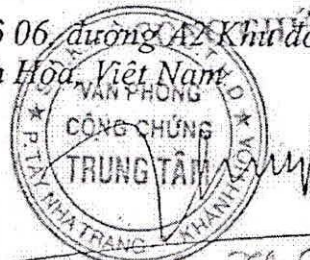 06, đường A2 Khu đô
Hòa, Việt Nam
VĂN PHÒNG
CÔNG CHỨNG
TRUNG TÂM
P. TÂY NHA TRANG - KHÁNH HÒA